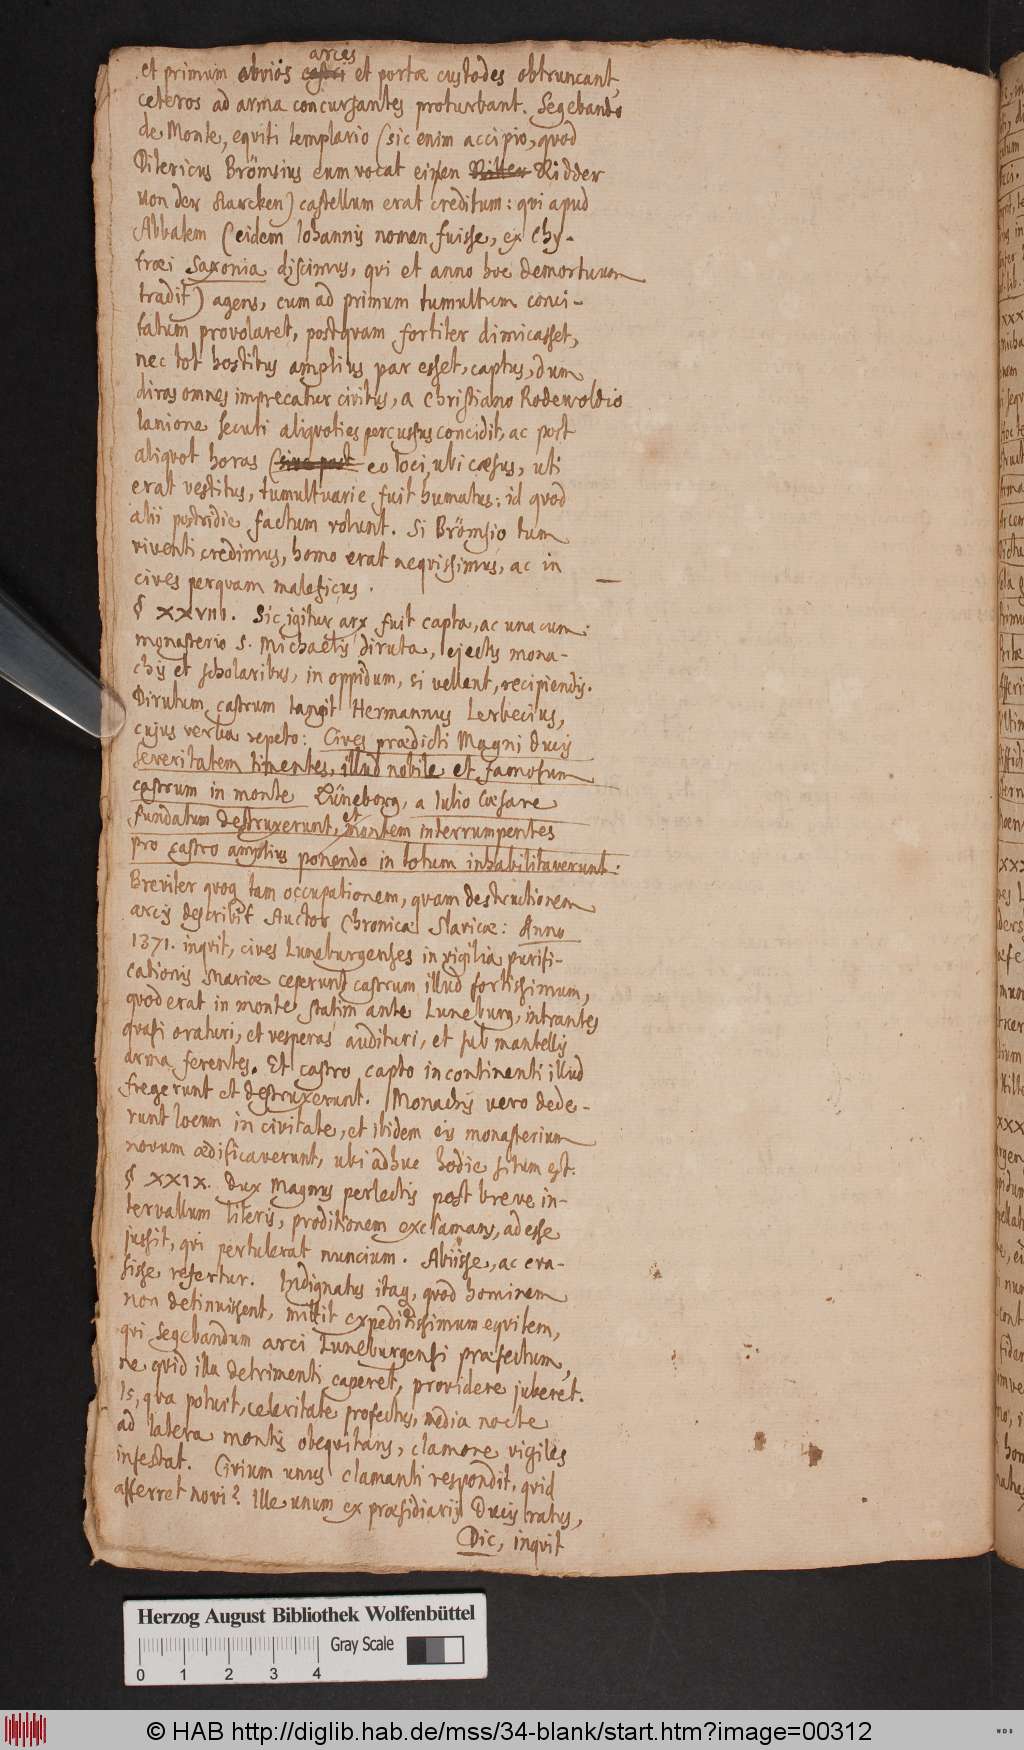 arces
et primum obviós castri et portæ custodes obtruncant,
ceteros ad arma concursantes proturbant. Segebando
de Monte, equiti templario (sic enim accipio, quod
Ditericus Brömsius eum vocat einen Ritter Ridder
von der Starcken) castellum erat creditum: qui apud
Abbatem (eidem Iohannis nomen fuisse, ex Chy-
træi Saxonia discimus, qui et anno hoc demortuum
tradit) agens, cum ad primum tumultum conci-
tatum provolaret, postquam fortiter dimicasset,
nec tot hostibus amplius par esset, captus, dum
diras omnes imprecatur civibus, a Christiano Rodewoldio
lanione securi aliquoties percussus concidit, ac post
aliquot horas (sive post eo loci, ubi cæsus, uti
erat vestitus, tumultuarie fuit humatus; id quod
alii postridie factum volunt. Si Brömsio tum
viventi credimus, homo erat nequissimus, ac in
cives perquam maleficus.
§ XXVIII. Sic igitur arx fuit capta, ac una cum
monasterio S. Michaelis diruta, ejectis mona-
chis et scholaribus, in oppidum, si vellent, recipiendis.
Dirutum castrum tangit Hermannus Lerbecius,
cujus verba repeto: Cives prædicti Magni Ducis
severitatem timentes, illud nobile et famosum
castrum in monte Lüneborg, a Iulio Cæsare
fundatum destruxerunt, et montem interrumpentes
pro castro amplius ponendo in totum inhabilitaverunt:
Breviter quoq tam occupationem, quam destructionem
arcis describit Auctor Chronicæ Slavicæ: Anno
1371. inquit, cives Luneburgenses in vigilia purifi-
cationis Mariæ ceperunt castrum illud fortissimum,
quod erat in monte statim ante Luneburg, intrantes
quasi oraturi, et vesperas audituri, et sub mantellis
arma ferentes. Et castro capto incontinenti illud
fregerunt et destruxerunt. Monachis vero dede-
runt locum in civitate, et ibidem eis monasterium
novum ædificaverunt, ubi adhuc hodie situm est.
§ XXIX. Dux Magnus perlectis post breve in-
tervallum literis, proditionem exclamans, adesse
jussit, qui pertulerat nuncium. Abiisse, ac eva-
sisse refertur. Indignatus itaq, quod hominem
non detinuissent, mittit expeditissimum equitem,
qui Segebandum arci Luneburgensi præfectum,
ne quid illa detrimenti caperet, providere juberet.
Is, qua potuit, celeritate profectus, media nocte
ad latera montis obequitans, clamore vigiles
infestat. Civium unus clamanti respondit, quid
afferret novi? Ille unum ex præsidiariis Ducis ratus,
Dic, inquit
Herzog August Bibliothek Wolfenbüttel
Gray Scale
0 1 2 3 4
© HAB http://diglib.hab.de/mss/34-blank/start.htm?image=00312